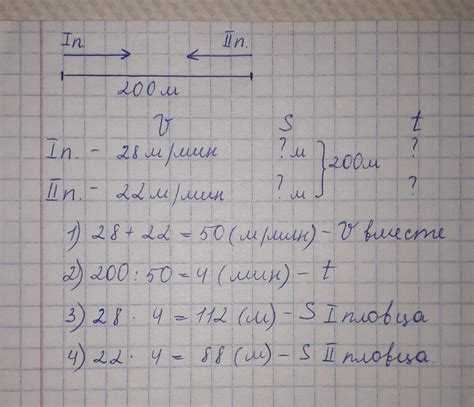 Iп. IIп.
200м
V S t
Iп. - 28 м/мин ? м ?
200м
IIп. - 22 м/мин ? м ?
1) 28 + 22 = 50 (м/мин) - V вместе
2) 200 : 50 = 4 (мин) - t
3) 28 · 4 = 112 (м) - S I пловца
4) 22 · 4 = 88 (м) - S II пловца.